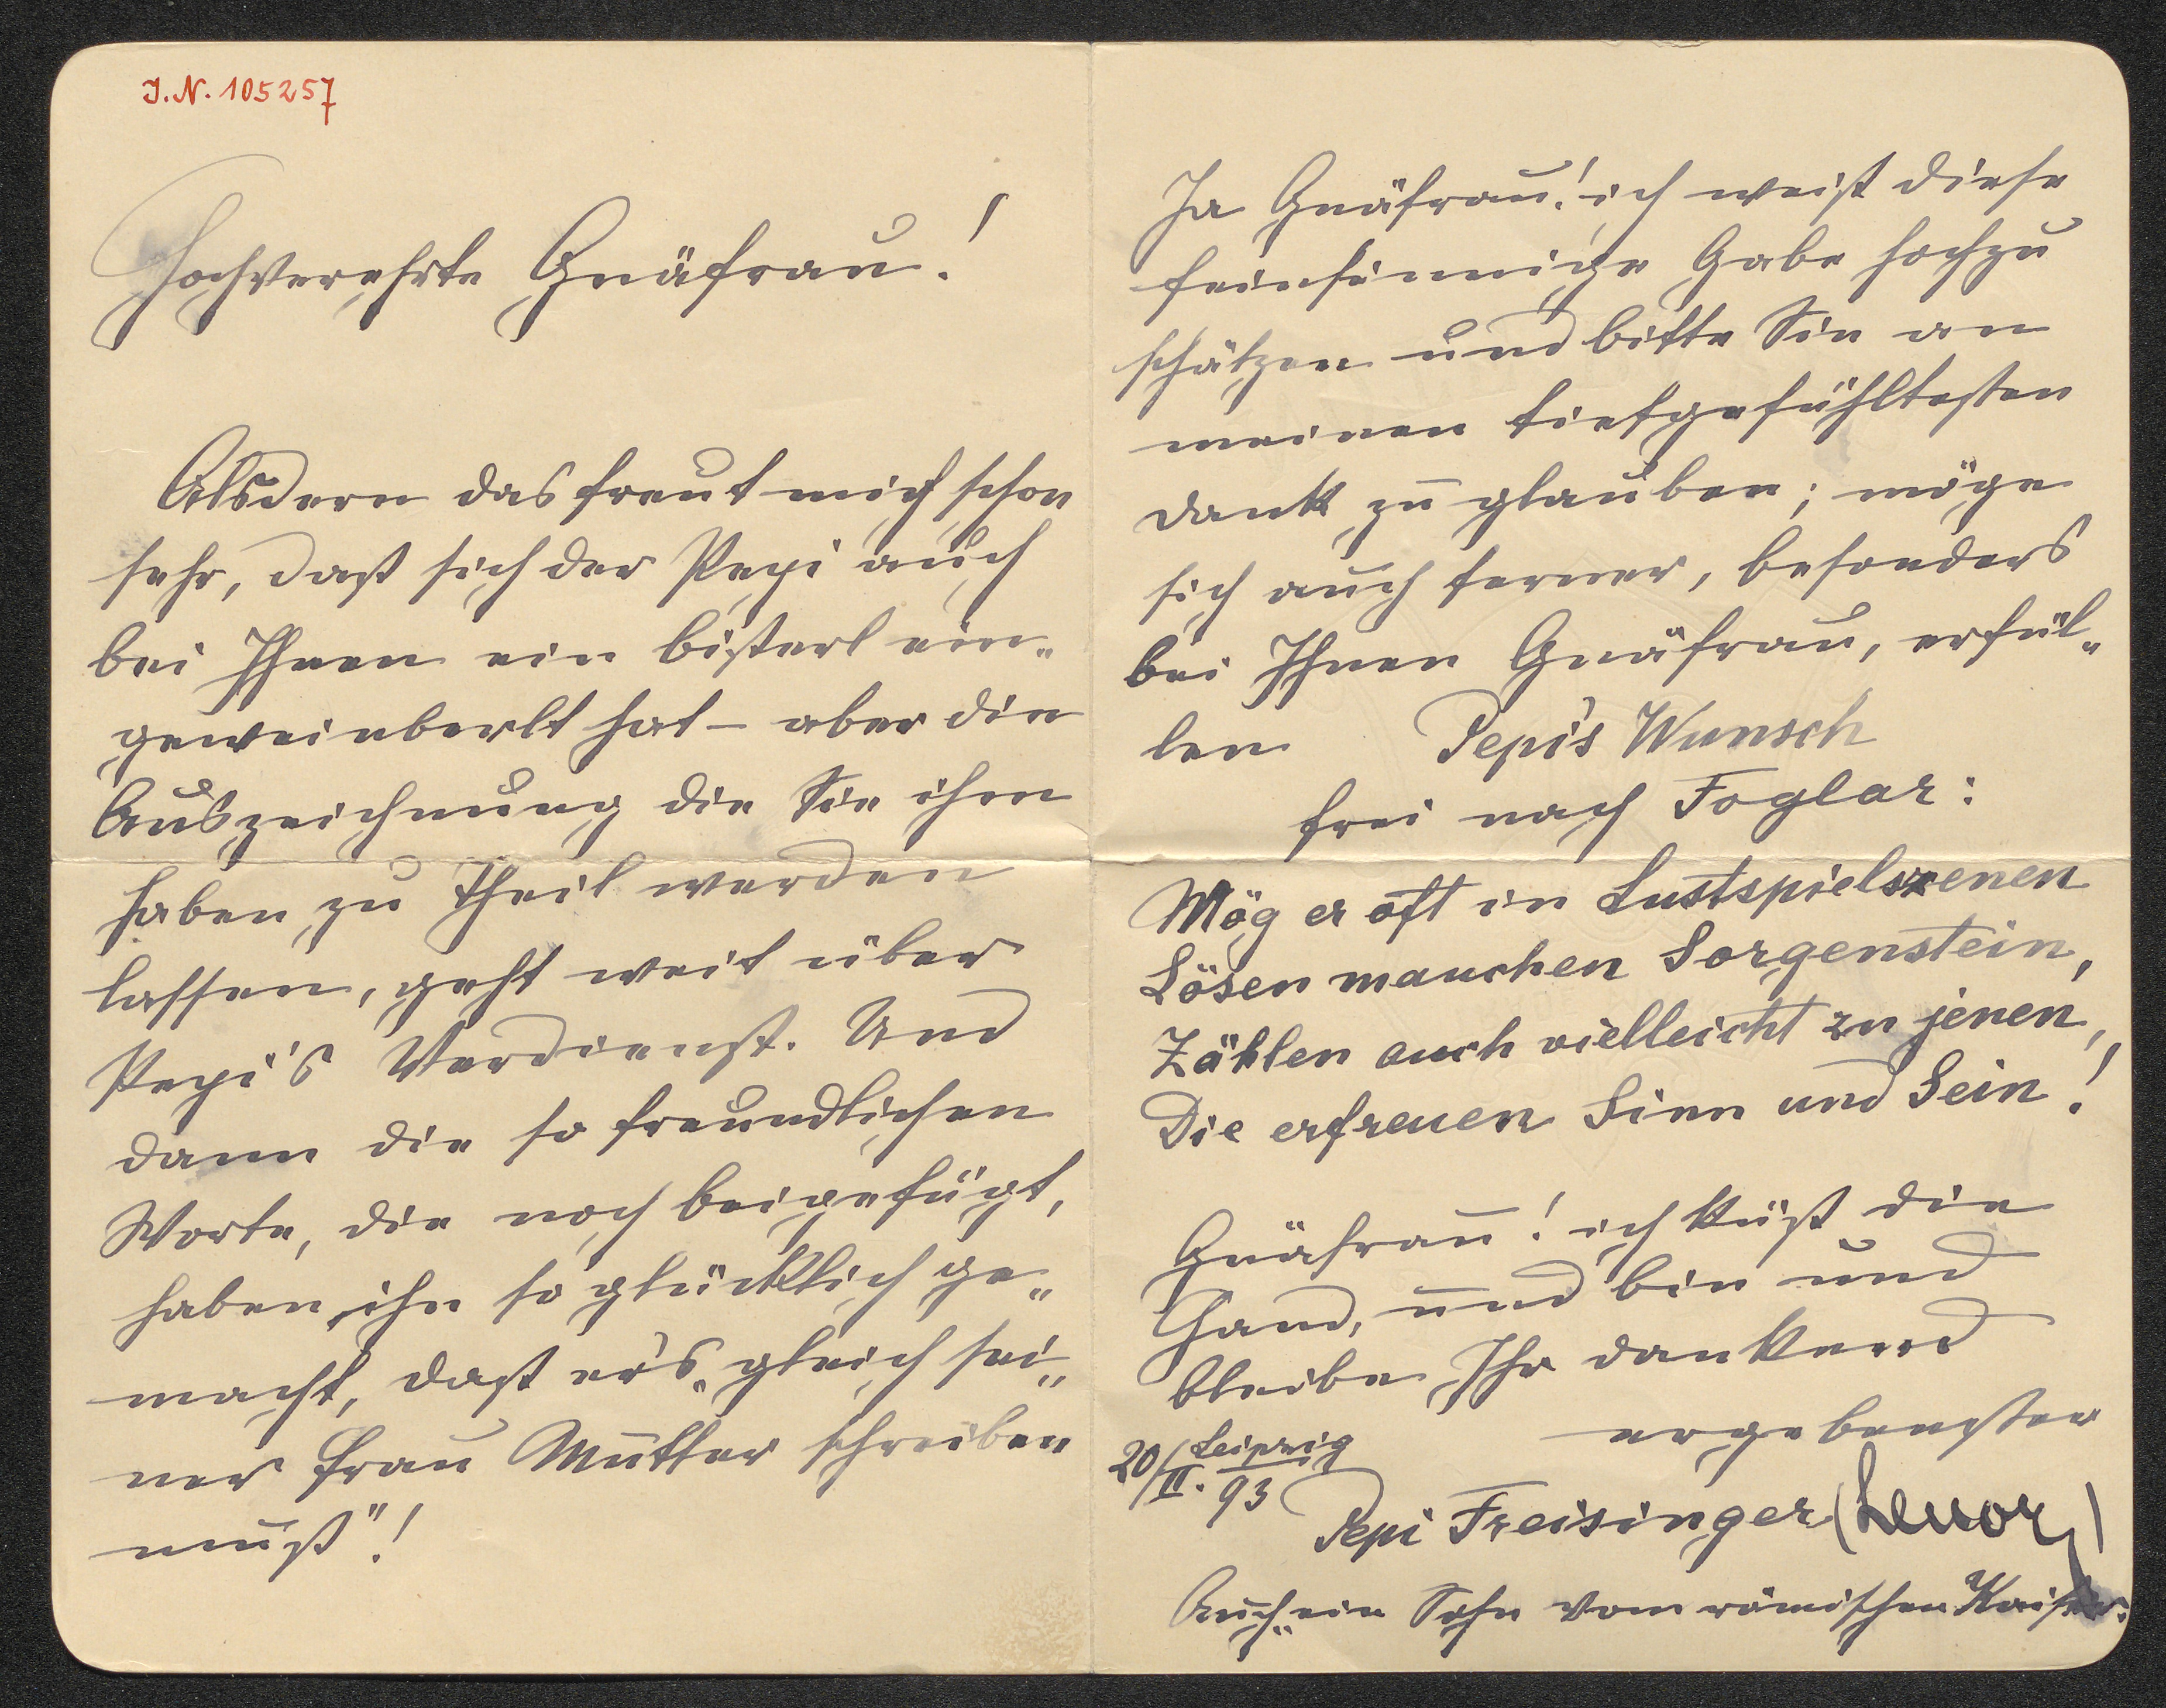 I.N. 105257
Hochverehrte Gnäfrau!
Alsdern das freut mich schon
sehr, dass sich der Pepi auch
bei Ihnen ein bisserl ein„
geweinberlt hat – aber die
Auszeichnung die Sie ihm
haben zu Theil werden
lassen, geht weit über
Pepi's Verdienst. Und
dann die so freundlichen
Worte, die noch beigefügt,
haben ihn so glücklich ge„
macht, dass er's „gleich sei„
ner Frau Mutter schreiben
muss"!
Ja Gnäfrau! ich weiss diese
feinsinnige Gabe hochzu
schätzen und bitte Sie an
meinen tiefgefühltesten
Dank zu glauben; möge
sich auch ferner, besonders
bei Ihnen Gnäfrau, erfül„
len Pepi's Wunsch
frei nach Foglar:
Mög er oft in Lustspielszenen
Lösen manchen Sorgenstein,
Zählen auch vielleicht zu jenen,
Die erfreuen Sinn und Sein!
Gnäfrau! ich küss die
Hand, und bin und
bleibe Ihr dankend
ergebenster
Leipzig
20/II. 93
Pepi Freisinger (Lenor)
Auch „ein Sohn vom römischen Kaiser.